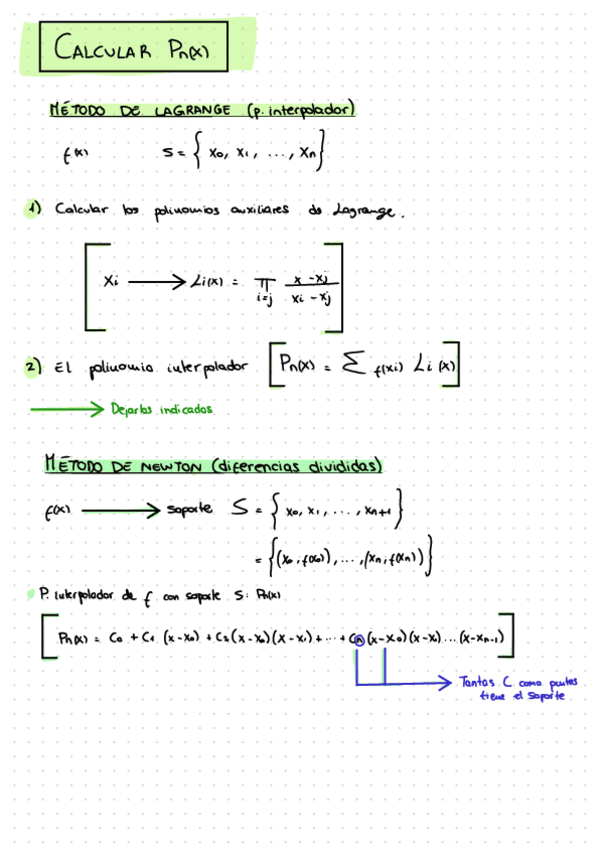 CALCULAR Pn(x)
MÉTODO DE LAGRANGE (p. interpolador)
f(x) S = { x0, x1, ..., xn }
1) Calcular los polinomios auxiliares de Lagrange.
[ xi → Li(x) = ∏ i=j (x - xj)/(xi - xj) ]
2) El polinomio interpolador [ Pn(x) = Σ f(xi) Li(x) ]
→ Dejarlos indicados
MÉTODO DE NEWTON (diferencias divididas)
f(x) → soporte S = { x0, x1, ..., xn+1 }
= { (x0, f(x0)), ..., (xn, f(xn)) }
P. interpolador de f con soporte S: Pn(x)
[ Pn(x) = C0 + C1 (x-x0) + C2 (x-x0)(x-x1) + ... + Cn (x-x0)(x-x1)...(x-xn-1) ]
→ Tantas C como puntos
tiene el soporte